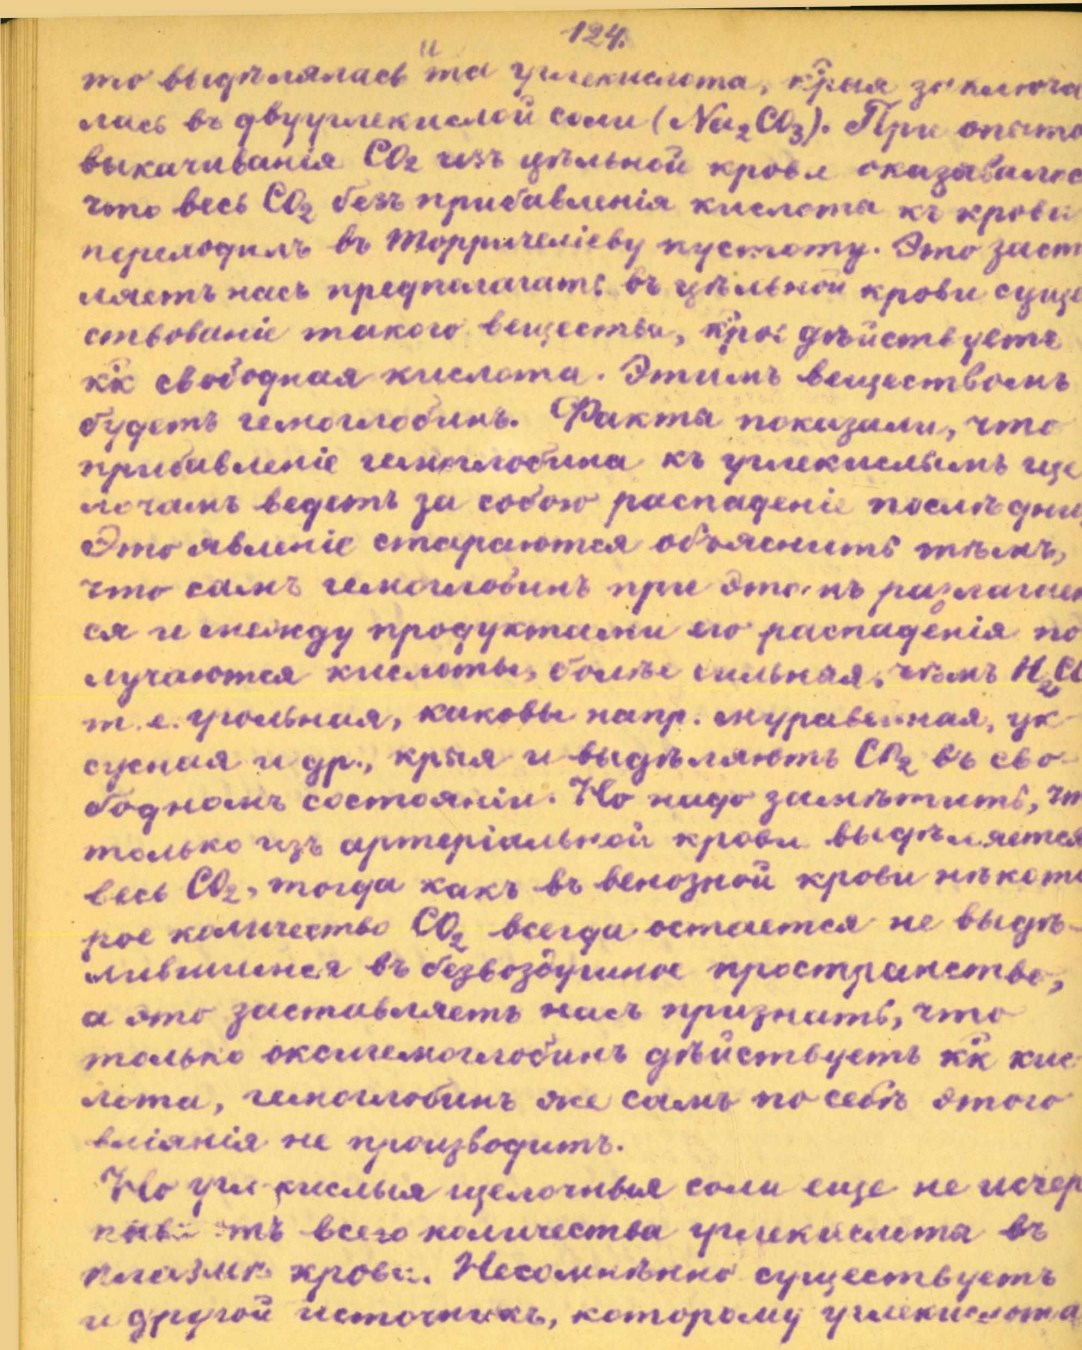 124.
то выдѣлялась и та углекислота, к̃рыя заключа
лась въ двууглекислой соли (Na₂CO₃). При опыте
выкачиванія CO₂ изъ цѣльной крови оказывалос
что весь CO₂ безъ прибавленія кислоты къ крови
переходилъ въ Торричелліеву пустоту. Это заст
ляетъ насъ предполагать въ цѣльной крови суще
ствованіе такого вещества, к̃рое дѣйствуетъ
к̃к свободная кислота. Этимъ веществомъ
будетъ гемоглобинъ. Факты показали, что
прибавленіе гемоглобина къ углекислымъ ще
лочамъ ведетъ за собою распаденіе послѣдни
Это явленіе стараются объяснить тѣмъ,
что самъ гемоглобинъ при этомъ разлагает
ся и между продуктами его распаденія по
лучаются кислоты, болѣе сильныя, чѣмъ H₂C
т. е. угольная, каковы напр. муравьиная, ук-
сусная и др., к̃рыя и выдѣляютъ CO₂ въ сво-
бодномъ состояніи. Но надо замѣтить, чт
только изъ артеріальной крови выдѣляется
весь CO₂, тогда какъ въ венозной крови нѣкото
рое количество CO₂ всегда остается не выдѣ-
лившимся въ безвоздушное пространство,
а это заставляетъ насъ признать, что
только оксигемоглобинъ дѣйствуетъ к̃к кис-
лота, гемоглобинъ же самъ по себѣ этого
вліянія не производитъ.
Но углекислыя щелочныя соли еще не исчер
пываютъ всего количества углекислоты въ
плазмѣ крови. Несомнѣнно существуетъ
и другой источникъ, которому углекислота